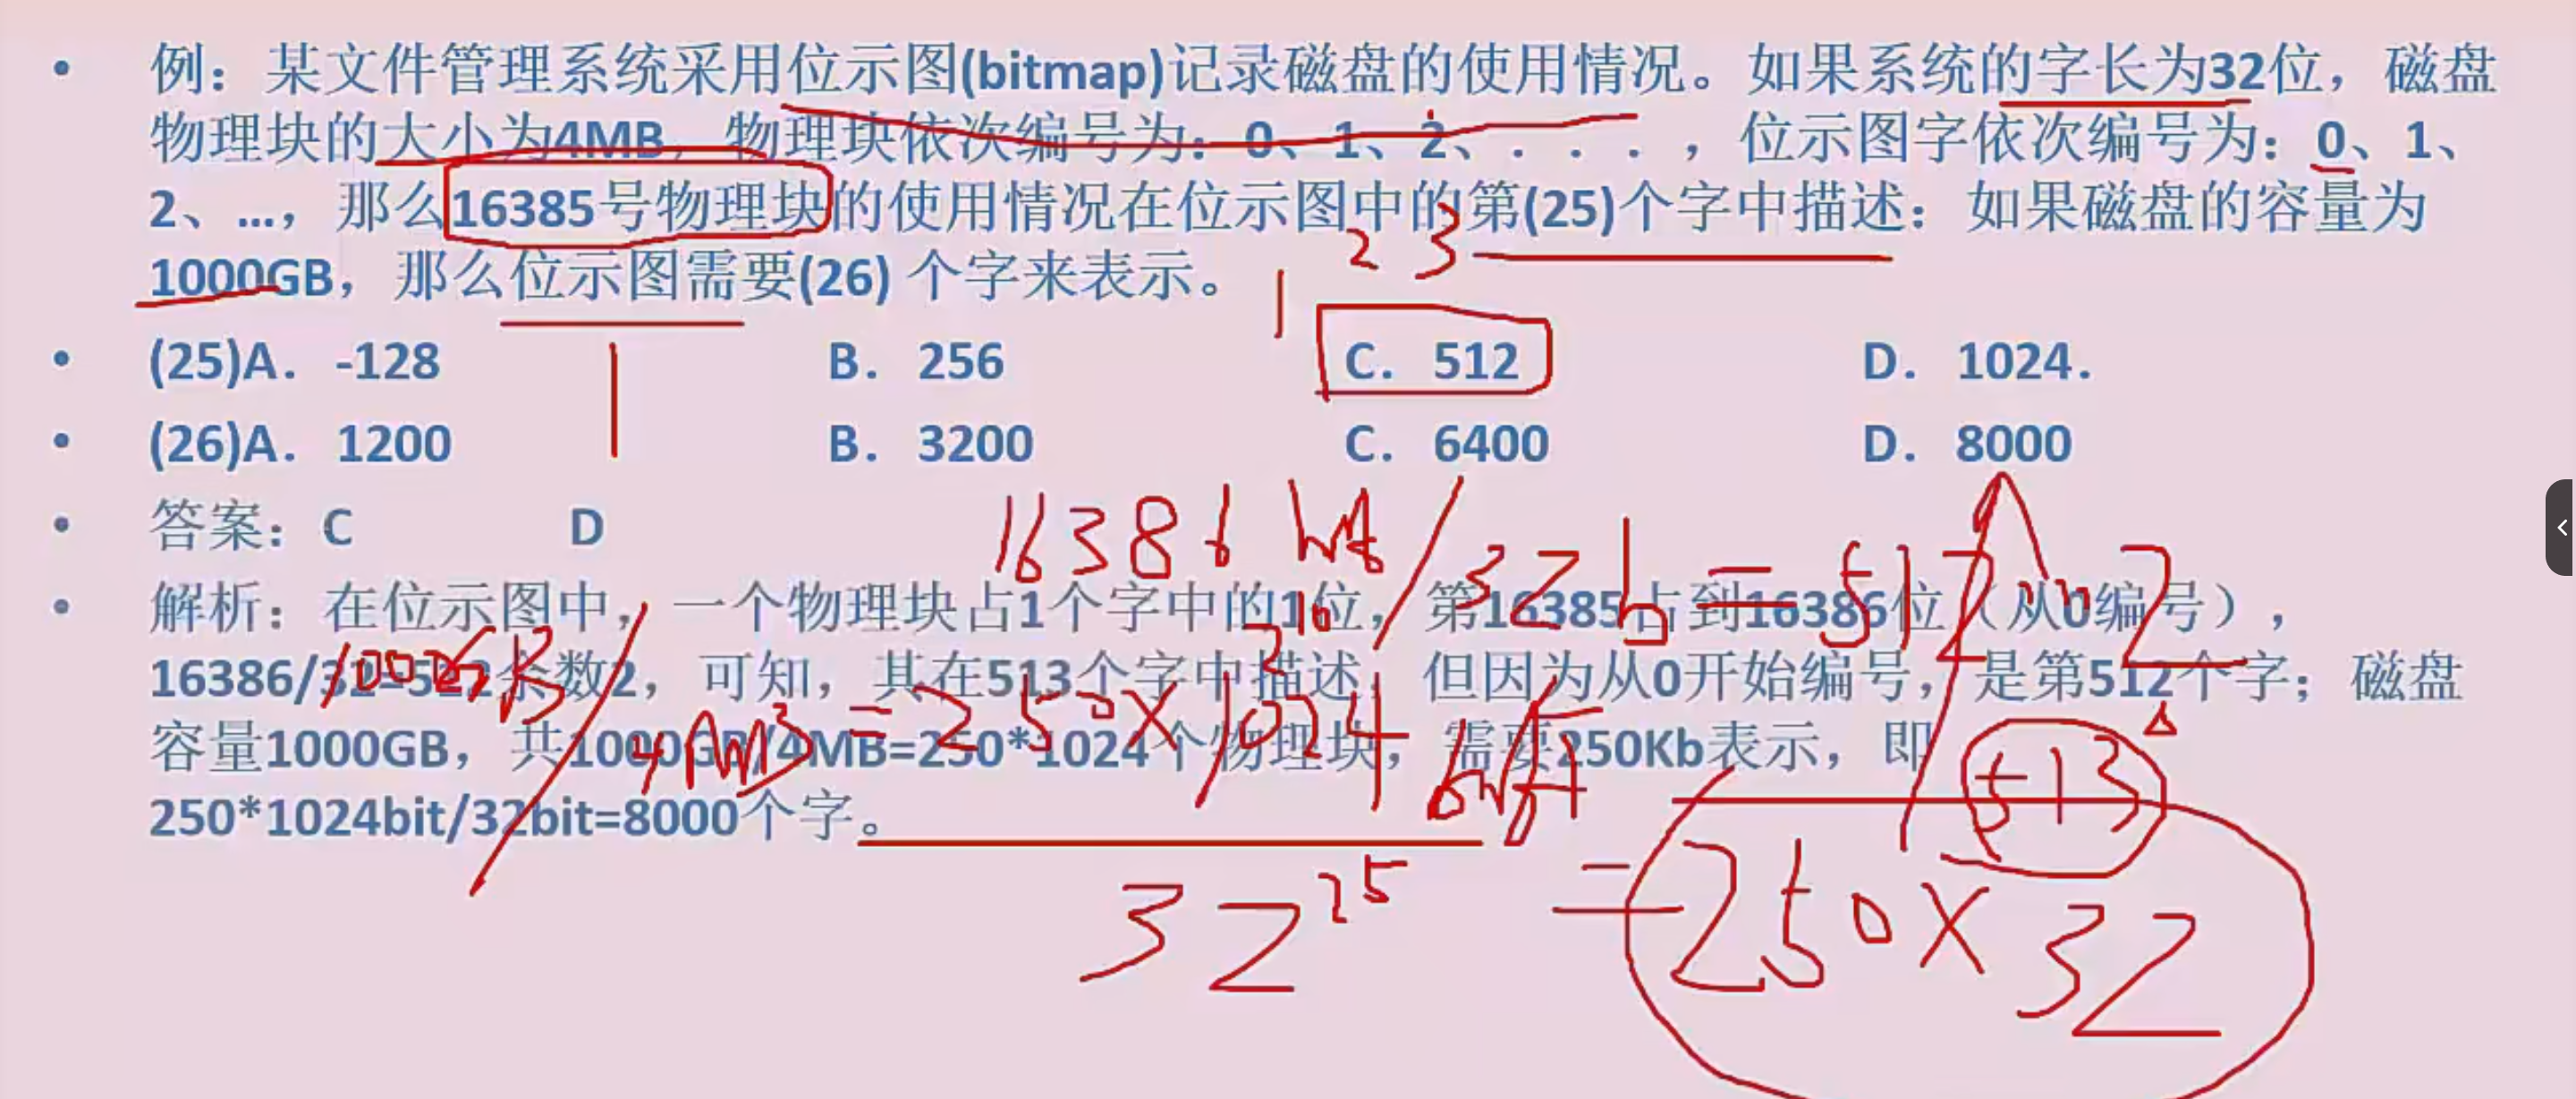 • 例：某文件管理系统采用位示图(bitmap)记录磁盘的使用情况。如果系统的字长为32位，磁盘
物理块的大小为4MB，物理块依次编号为：0、1、2、. . . ，位示图字依次编号为：0、1、
2、…，那么16385号物理块的使用情况在位示图中的第(25)个字中描述：如果磁盘的容量为
2 3
1000GB，那么位示图需要(26) 个字来表示。
• (25)A. -128 B. 256 C. 512 D. 1024.
• (26)A. 1200 B. 3200 C. 6400 D. 8000
• 答案：C D
/ 32 b = 512 … 2
• 解析：在位示图中，一个物理块占1个字中的1位，第16385占到16386位（从0编号），
16386/32=512余数2，可知，其在513个字中描述，但因为从0开始编号，是第512个字；磁盘
1000GB / 4MB = 250 X 1024
容量1000GB，共1000GB/4MB=250*1024个物理块，需要250Kb表示，即
513
250*1024bit/32bit=8000个字。
32 25 = 250 X 32